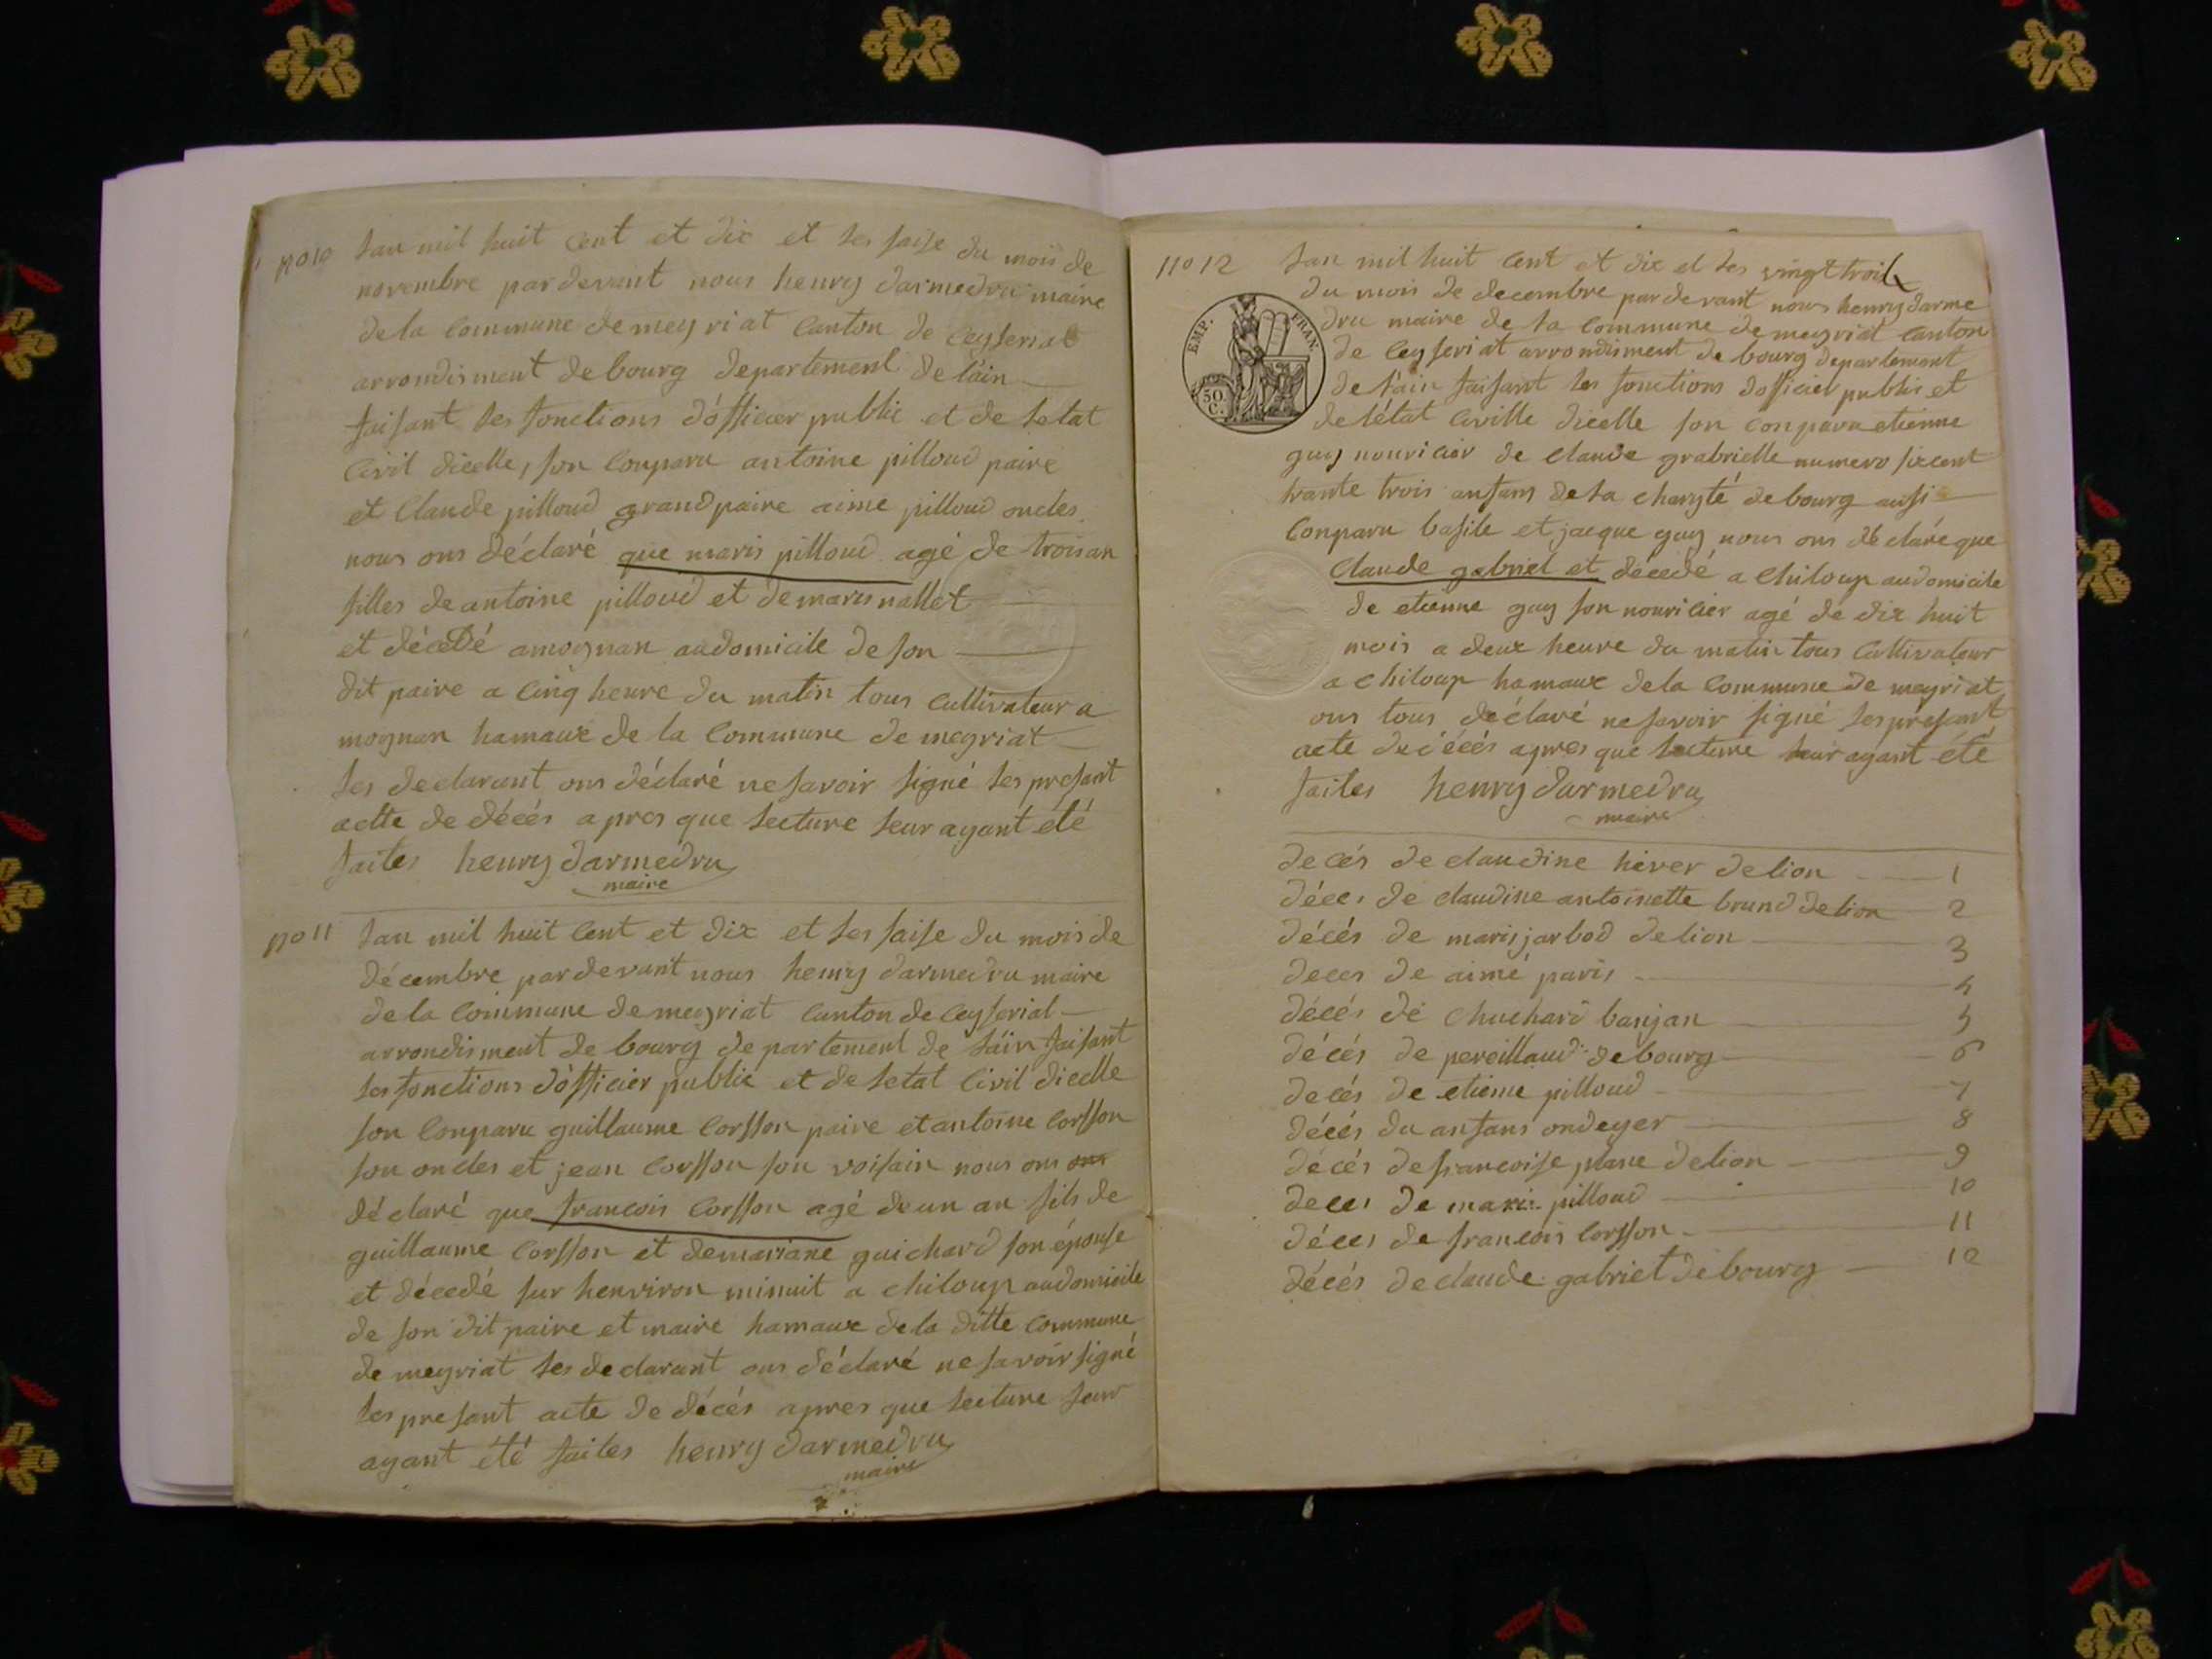 no 10 lan mil huit cent et dix et les saise du mois de
novembre pardevant nous henry darmedru maire
de la commune de meyriat canton de ceyseriat
arrondisment de bourg departement de láin
faisant les fonctions dófficier public et de letat
civil dicelle, son conparu antoine pilloud paire
et claude pilloud grand paire aime pilloud oncles
nous ons déclaré que maris pilloud agé de trois an
filles de antoine pilloud et de maris nallet
et décédé a mognan au domicile de son
dit paire a cinq heure du matin tous cultivateur a
mognan hamaux de la commune de meyriat
les declarant ons déclaré ne savoir signé les presant
actte de décés apres que lecture leur ayant été
faites henry darmedru
maire
no 11 lan mil huit cent et dix et les saise du mois de
décembre pardevant nous henry darmedru maire
de la commune de meyriat canton de ceyseriat
arrondisment de bourg departement de láin faisant
les fonctions dófficier public et de letat civil dicelle
son conparu guillaume corsson paire et antoine corsson
son oncles et jean corsson son voisain nous ons ons
déclaré que francois corsson agé de un an fils de
guillaume corsson et de mariane guichard son épouse
et décedé sur henviron minuit a chiloup au domicile
de son dit paire et maire hamaux de la ditte commune
de meyriat les declarant ons déclaré ne savoir signé
les presant acte de décés apres que lecture leur
ayant été faites henry darmedru
maire
no 12 lan mil huit cent et dix et les vingt trois
du mois de decembre pardevant nous henry darme
dru maire de la commune de meyriat canton
de ceyseriat arrondisment de bourg departement
de láin faisant les fonctions dofficier public et
de létat civille dicelle son conparu etienne
guy nouricier de claude grabrielle numero six cent
trante trois anfans de la charyté de bourg aussi
conparu basile et jacque guy nous ons déclaré que
claude gabriel et décedé a chiloup au domicile
de etienne guy son nouricier agé de dix huit
mois a deux heure du matin tous cultivateur
a chiloup hamaux de la commune de meyriat
ons tous déclaré ne savoir signé les présant
acte de décés apres que lecture leur ayant été
faites henry darmedru
maire
EMP. FRAN.
50 C.
decés de claudine hiver de lion 1
déces de claudine antoinette brund de lion 2
décés de maris jarbod de lion 3
deces de aimé paris 4
décés de chuchard banjan 5
décés de pereilland de bourg 6
decés de etienne pilloud 7
décés du anfans ondeyer 8
décés de francoise plane de lion 9
deces de maris pilloud 10
déces de francois corsson 11
décés de claude gabriel de bourg 12